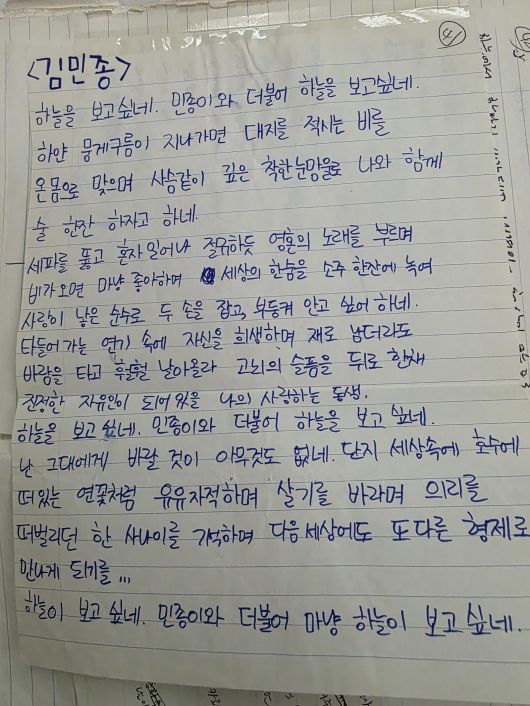 <김민종>
하늘을 보고싶네. 민종이와 더불어 하늘을 보고싶네.
하얀 뭉게구름이 지나가면 대지를 적시는 비를
온몸으로 맞으며 사슴같이 깊은 착한눈망울로 나와 함께
술 한잔 하자고 하네.
세파를 뚫고 혼자일어나 절유하듯 영혼의 노래를 부르며
비가오면 마냥 좋아하며 세상의 한숨을 소주 한잔에 녹여
사랑이 낳은 순수로 두 손을 잡고, 부둥켜 안고 싶어 하네.
타들어가는 연기 속에 자신을 희생하며 재로 남더라도
바람을 타고 훨훨 날아올라 고뇌의 슬픔을 뒤로 한채
진정한 자유인이 되어있을 나의 사랑하는 동생.
하늘을 보고 싶네. 민종이와 더불어 하늘을 보고 싶네.
난 그대에게 바랄 것이 아무것도 없네. 단지 세상속에 호수에
떠있는 연꽃처럼 유유자적하며 살기를 바라며 의리를
떠벌리던 한 사나이를 기억하며 다음세상에도 또다른 형제로
만나게 되기를...
하늘이 보고 싶네. 민종이와 더불어 마냥 하늘이 보고싶네.